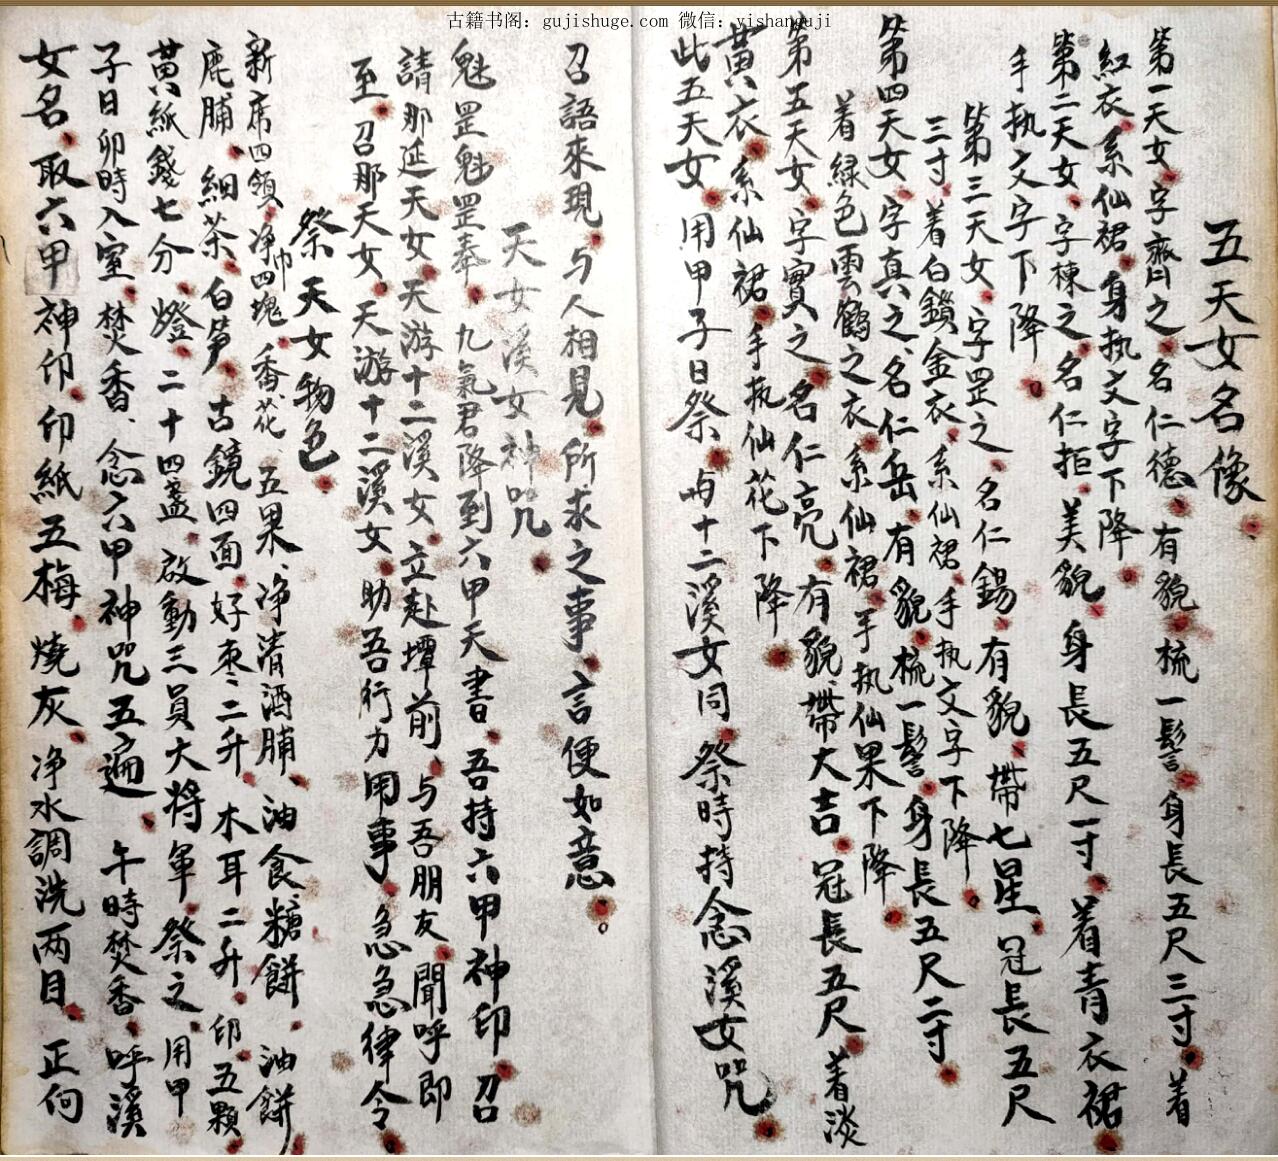 古籍书阁：gujishuge.com 微信：yishanguji
五天女名像
第一天女字齊之名仁德有貌梳一髻身長五尺三寸着
紅衣系仙裙身执文字下降
第二天女字棟之名仁拒美貌身長五尺一寸着青衣裙
手执文字下降
第三天女字罡之名仁錫有貌帶七星冠長五尺
三寸着白鎖金衣系仙裙手执文字下降
第四天女字真之名仁岳有貌梳一髻身長五尺二寸
着緑色雲鶴之衣系仙裙手执仙果下降
第五天女字實之名仁亮有貌帶大吉冠長五尺着淡
黃衣系仙裙手执仙花下降
此五天女用甲子日祭与十二溪女同祭時持念溪女咒
召語來現与人相見所求之事言便如意
天女溪女神咒
魁罡魁罡奉九氣君降到六甲天書吾持六甲神印召
請那延天女天游十二溪女立赴壇前与吾朋友聞呼即
至召那天女天游十二溪女助吾行力用事急急律令
祭天女物色
新席四領净巾四塊香花五果净清酒脯油食糖餅油餅
鹿脯細茶白笋古鏡四面好枣二升木耳二升印五顆
黃紙錢七分燈二十四盏啟動三員大將軍祭之用甲
子日卯時入室焚香念六甲神咒五遍午時焚香呼溪
女名取六甲神印印紙五梅燒灰净水調洗两目正向